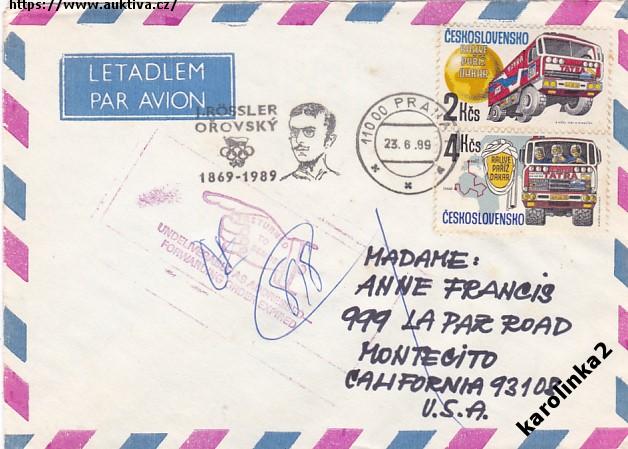 https://www.auktiva.cz/
LETADLEM
PAR AVION
J.RÖSSLER
OŘOVSKÝ
1869-1989
11000 PRAHA
23.6.89
ČESKOSLOVENSKO
RALLYE
PAŘÍŽ
DAKAR
TATRA
2 Kčs
4 Kčs
RALLYE
PAŘÍŽ
DAKAR
TATRA
ČESKOSLOVENSKO
RETURNED
TO
SENDER
UNDELIVERABLE AS ADDRESSED
FORWARDING ORDER EXPIRED
MADAME:
ANNE FRANCIS
999 LA PAR ROAD
MONTECITO
CALIFORNIA 93108
U.S.A.
karolinka2